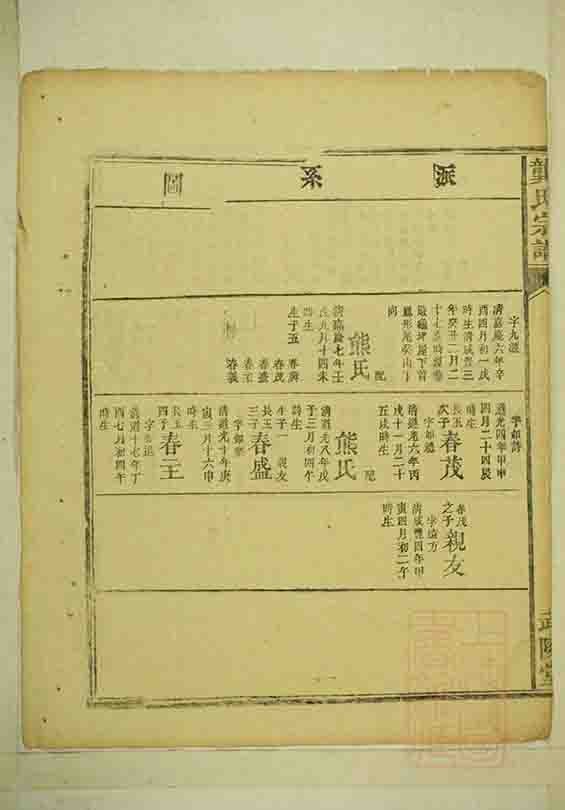 氏宗譜
派系圖
字九選
清嘉慶六年辛
酉四月初一戌
時生清咸豐三
年癸丑二月二
向
配
熊氏
清嘉慶七年壬
戌九月十四未
時生
生子五
春茂
春盛
春玉
春義
字如詩
道光四年甲申
四月二十四辰
時生
長玉
次子
春茂
字如禮
清道光六年丙
戌十一月二十
五戌時生
配
熊氏
清道光八年戊
子三月初四午
時生
生子一
親友
長玉
三子
春盛
字如樂
清道光十年庚
寅三月十六申
時生
長玉
四子
春玉
清道光十七年丁
酉七月初四午
時生
春茂
之子
親友
字遠方
清咸豐四年甲
寅四月初二午
時生
武陵堂